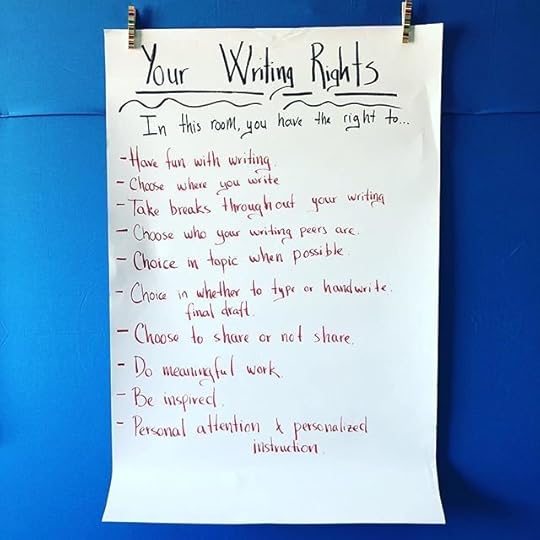 Your Writing Rights
In this room, you have the right to...
- Have fun with writing.
- Choose where you write
- Take breaks throughout your writing
- Choose who your writing peers are.
- Choice in topic when possible.
- Choice in whether to type or handwrite.
final draft.
- Choose to share or not share.
- Do meaningful work.
- Be inspired.
- Personal attention & personalized
instruction.